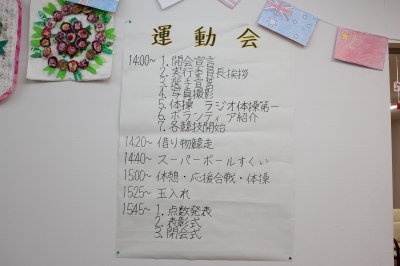 運動会
14:00~ 1. 開会宣言
2. 実行委員長挨拶
3. 選手宣誓
4. 写真撮影
5. 体操 ラジオ体操第一
6. ボランティア紹介
7. 各競技開始
14:20~ 借り物競走
14:40~ スーパーボールすくい
15:00~ 休憩・応援合戦・体操
15:25~ 玉入れ
15:45~ 1. 点数発表
2. 表彰式
3. 閉会式